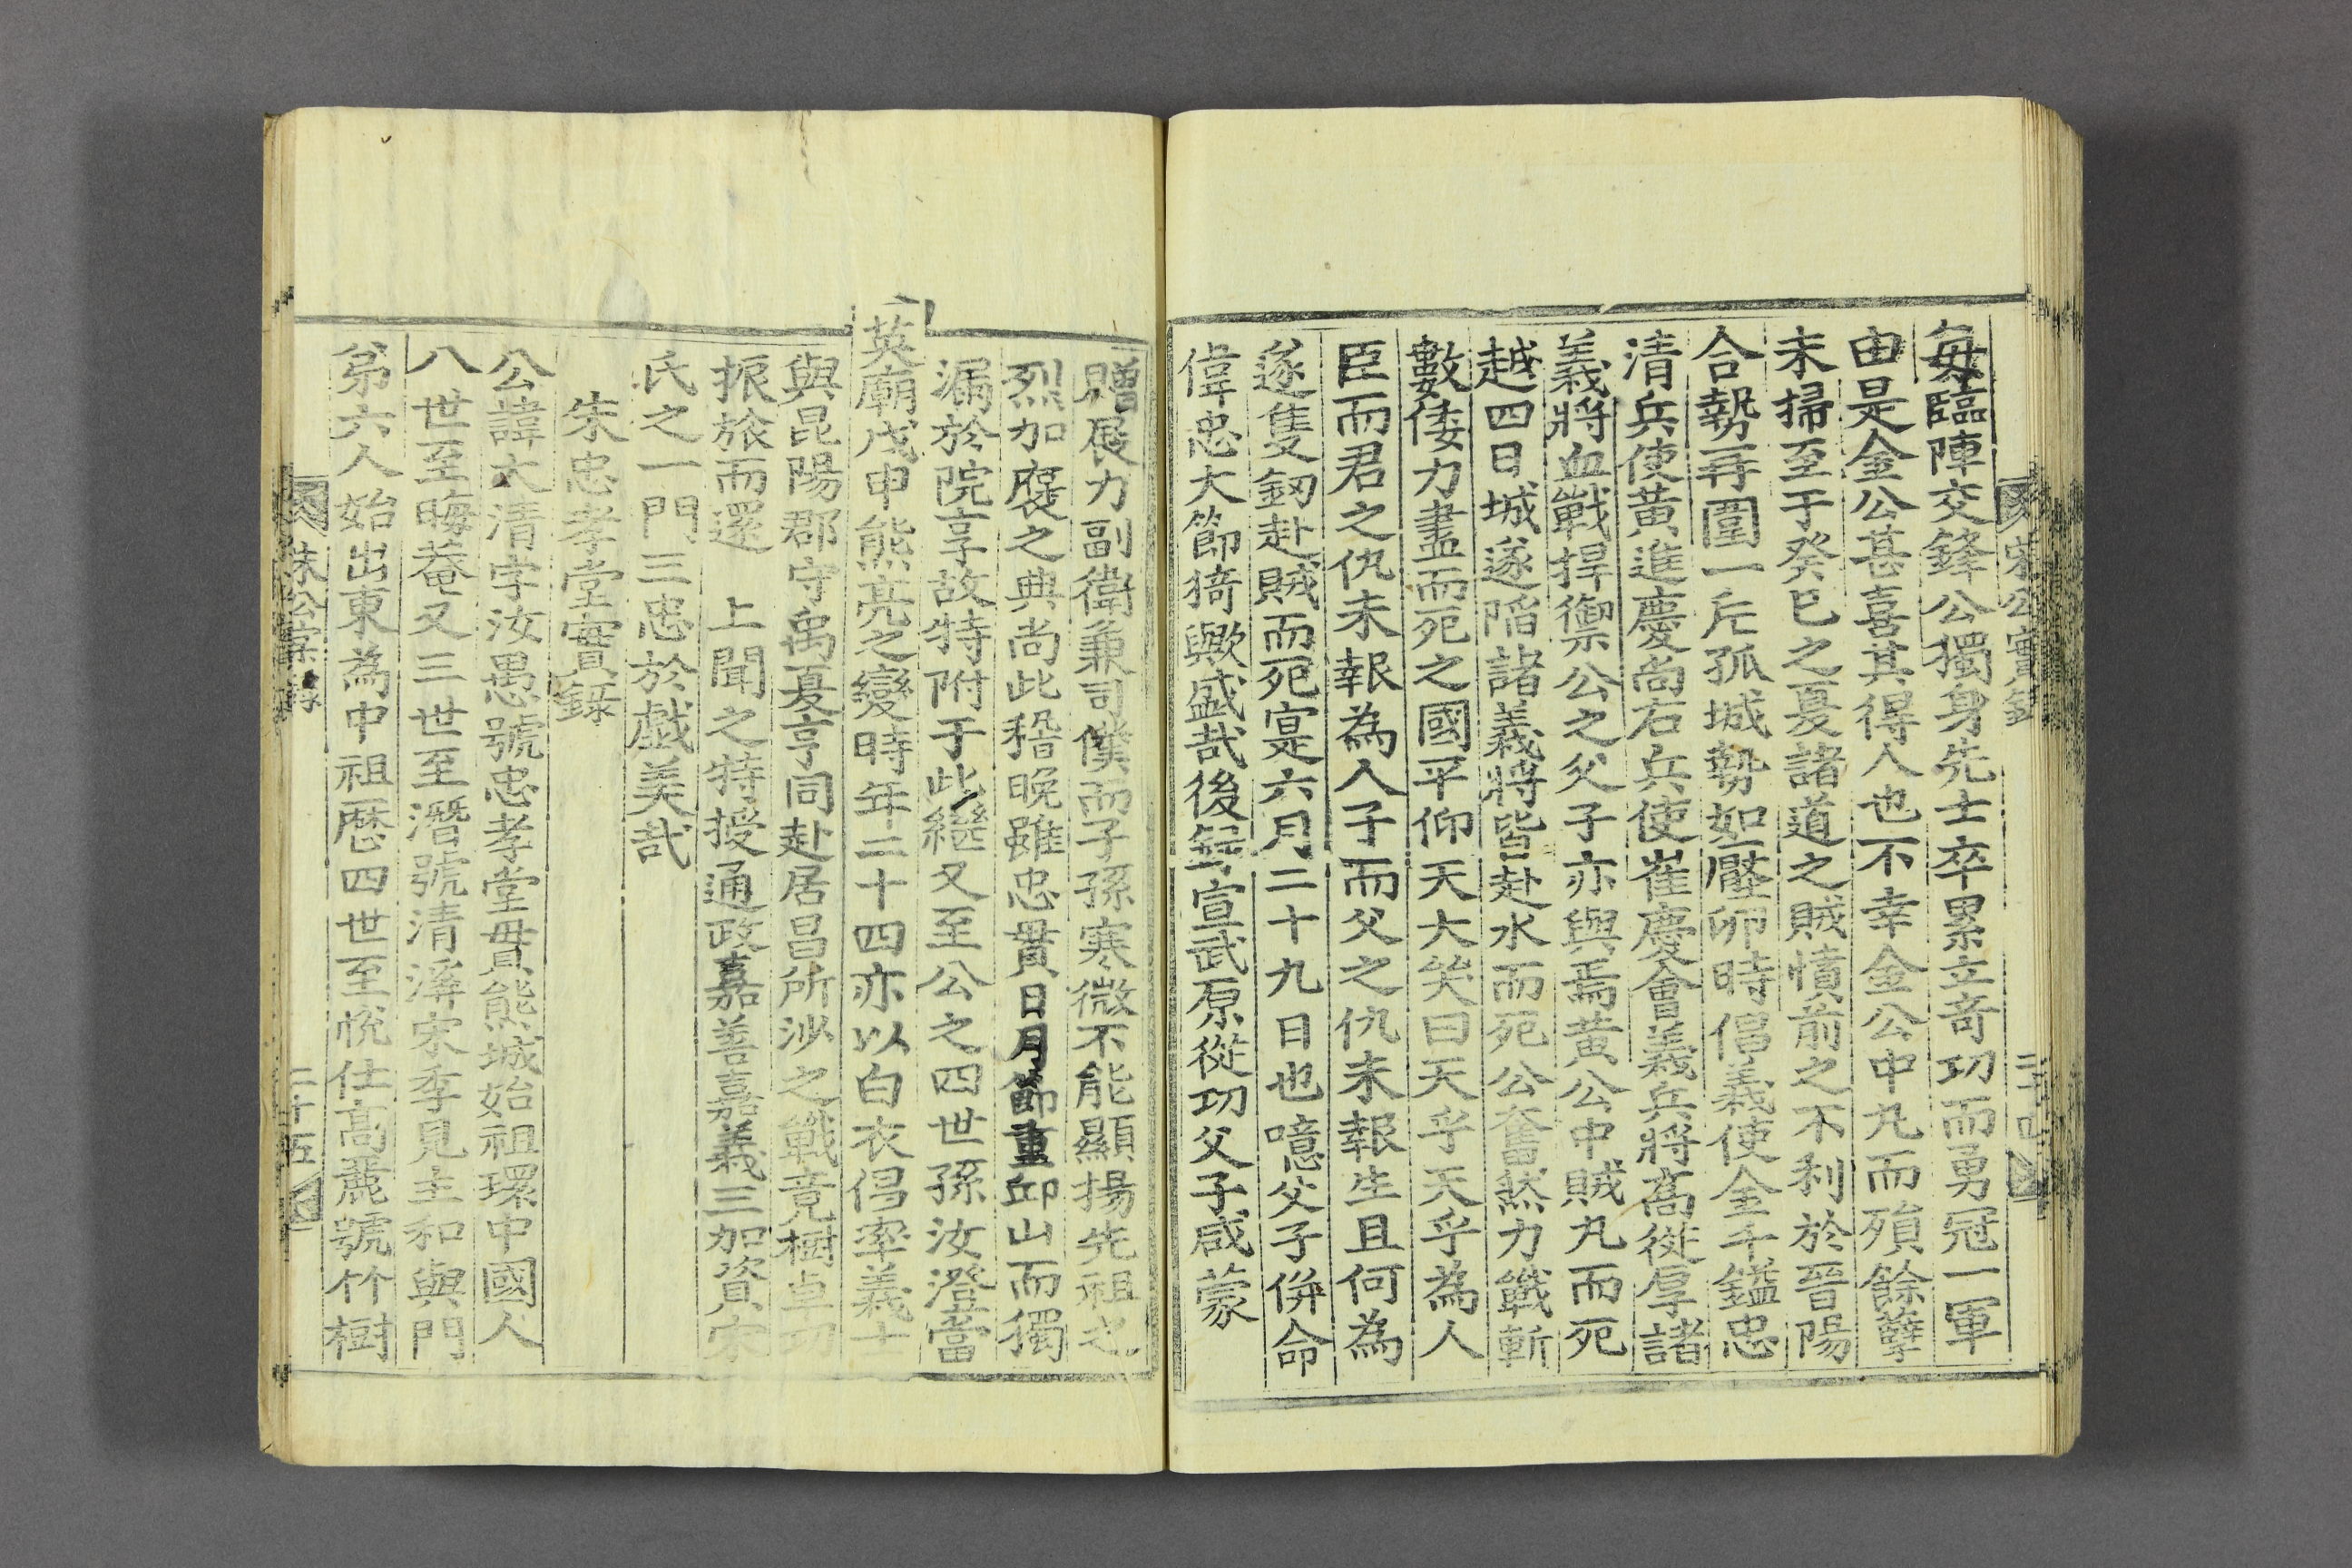 宋公實錄 二十四
每臨陣交鋒公獨身先士卒累立奇功而勇冠一軍
由是金公甚喜其得人也不幸金公中丸而殞餘孽
未掃至于癸巳之憂諸道之賊憤前之不利於晉陽
合勢再圍一片孤城勢如壓卵時倡義使金千鎰忠
清兵使黃進慶尚右兵使崔慶會義兵將高從厚諸
義將血戰捍禦公之父子亦與焉黃公中賊丸而死
越四日城遂陷諸義將皆赴水而死公奮然力戰斬
數倭力盡而死之國平仰天大笑曰天乎天乎為人
臣而君之仇未報為人子而父之仇未報生且何為
遂隻釰赴賊而死寔六月二十九日也噫父子併命
偉忠大節猗歟盛哉後錄宣武原從功父子咸蒙
贈展力副衛兼司僕而子孫寒微不能顯揚先祖之
烈加褒之典尚此稽晚雖忠貫日月節重邱山而獨
漏於院享故特附于此繼又至公之四世孫汝澄當
英廟戊申熊亮之變時年二十四亦以白衣倡率義士
與昆陽郡守禹夏亨同赴居昌所沙之戰竟樹卓功
振旅而還 上聞之特授通政嘉善嘉義三加資宋
氏之一門三忠於戲美哉
朱忠孝堂實錄
公諱大清字汝愚號忠孝堂貫熊城始祖環中國人
八世至晦菴又三世至潛號清溪宋季見主和與門
弟六人始出東為中祖歷四世至悅仕高麗號竹樹
朱公實錄 二十五